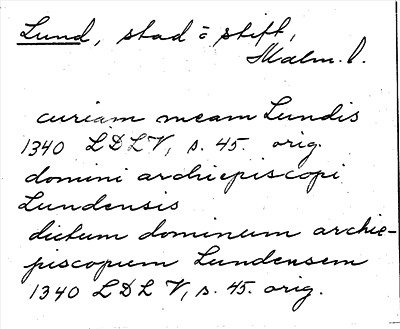 Lund, stad o stift,
Malm. l.
curiam meam Lundis
1340 LDLV, s. 45. orig.
domini archiepiscopi
Lundensis
dictum dominum archie-
piscopum Lundensem
1340 LDLV, s. 45. orig.